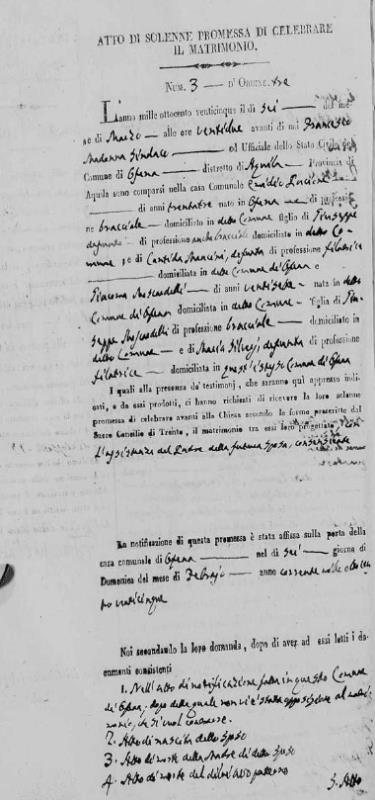 ATTO DI SOLENNE PROMESSA DI CELEBRARE
IL MATRIMONIO.
NUM. 3 — D'ORDINE tre
L'anno mille ottocento venticinque il di sei — del me-
se di Marzo — alle ore ventidue avanti di noi Francesco
Madonna Sindaco — ed Uffiziale dello Stato Civile
Comune di Ofena — distretto di Aquila — Provincia di
Aquila sono comparsi nella casa Comunale
— di anni trentatre nato in Ofena — di professio-
ne bracciale — domiciliato in detto Comune figlio di Giuseppe
defunto — di professione anche bracciale domiciliato in detto Co-
mune, e di Candida Mancini, defunta di professione filatrice
— domiciliata in detto Comune di Ofena e
Giacoma Moscardelli — di anni ventisette — nata in detto
Comune di Ofena domiciliata in detto Comune — figlia di Giu-
seppe Moscardelli di professione bracciale — domiciliato in
detto Comune — e di Maria Silveri, defunta di professione
filatrice — domiciliata in quest'istesso Comune di Ofena
I quali alla presenza de' testimonj, che saranno qui appresso indi-
cati, e da essi prodotti, ci hanno richiesti di ricevere la loro solenne
promessa di celebrare avanti alla Chiesa secondo le forme prescritte dal
Sacro Concilio di Trento, il matrimonio tra essi loro progettato, con
L'assistenza del Padre della futura sposa, consenziente
La notificazione di questa promessa è stata affissa sulla porta della
casa comunale di Ofena — nel dì sei — giorno di
Domenica del mese di Febrajo — anno corrente mille ottocen
to venticinque
Noi secondando la loro domanda, dopo di aver ad essi letti i do-
cumenti consistenti
1. Nell'atto di notificazione fatta in questo Comune
di Ofena, dopo della quale non vi è stata opposizione al matri-
monio,
2. Atto di nascita dello sposo
3. Atto di morte della Madre di detto sposo
4. Atto di morte del di lui avo paterno
5. Atto